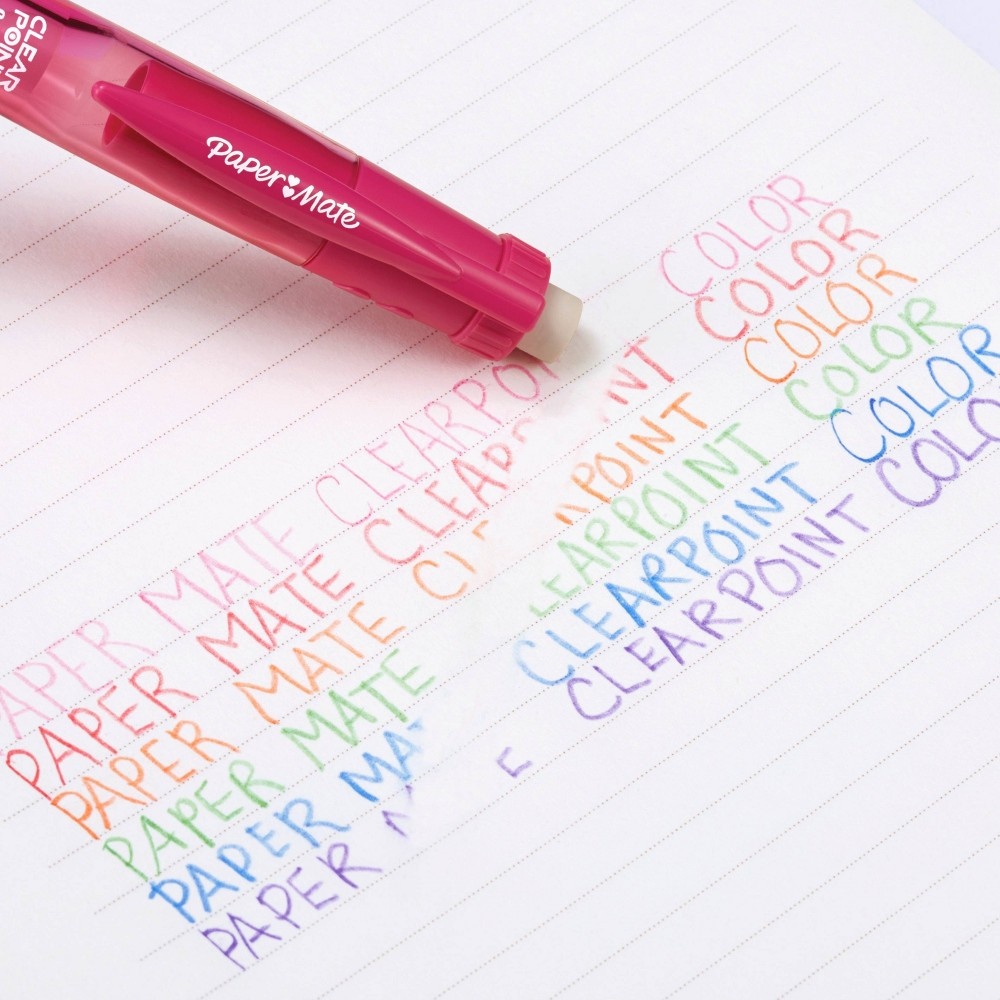 CLEAR
POINT
Paper Mate
PAPER MATE CLEARPO COLOR
PAPER MATE CLEAR NT COLOR
PAPER MATE CL POINT COLOR
PAPER MATE LEARPOINT COLOR
PAPER MA CLEARPOINT COLOR
PAPER E CLEARPOINT COLO